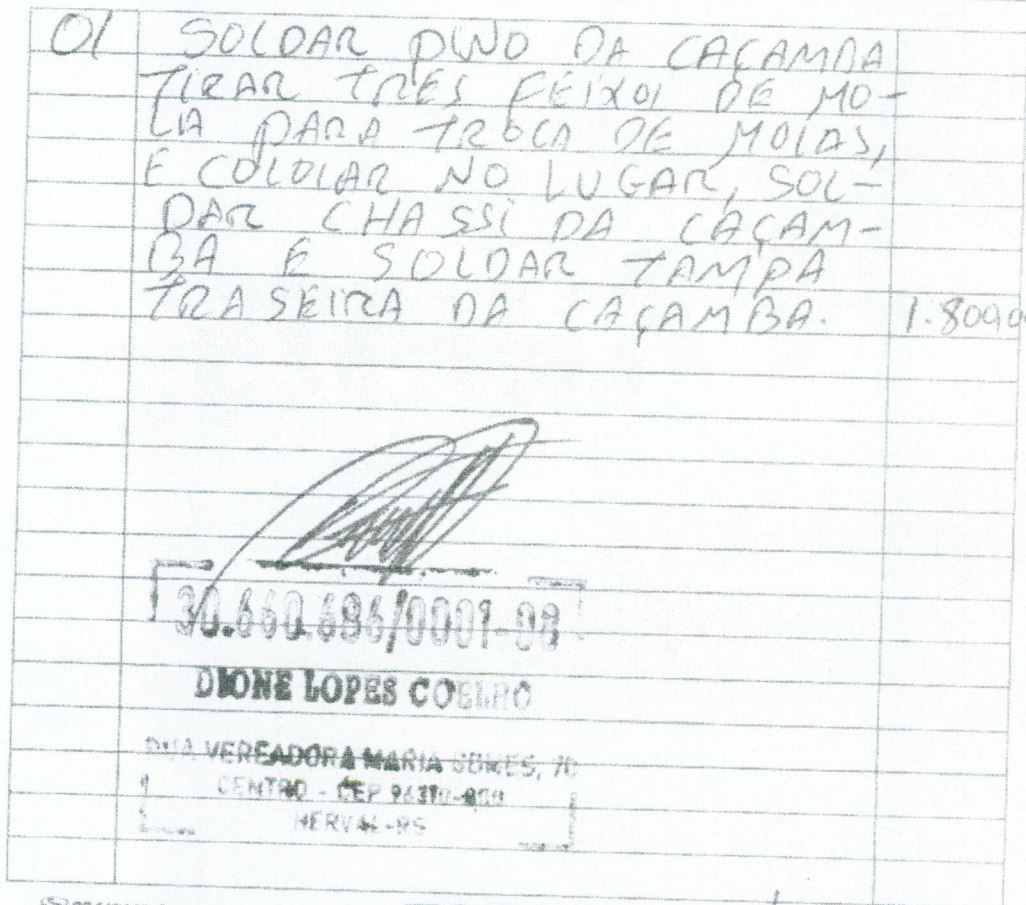 01 SOLDAR PINO DA CAÇAMBA
TIRAR TRES FEIXOI DE MO-
LA PARA TROCA DE MOLAS,
E COLOCAR NO LUGAR, SOL-
DAR CHASSI DA CAÇAM-
BA E SOLDAR TAMPA
TRASEIRA DA CAÇAMBA. 1.800,00
30.660.686/0001-08
DIONE LOPES COELHO
RUA VEREADORA MARIA GOMES, 70
CENTRO - CEP
HERVAL-RS